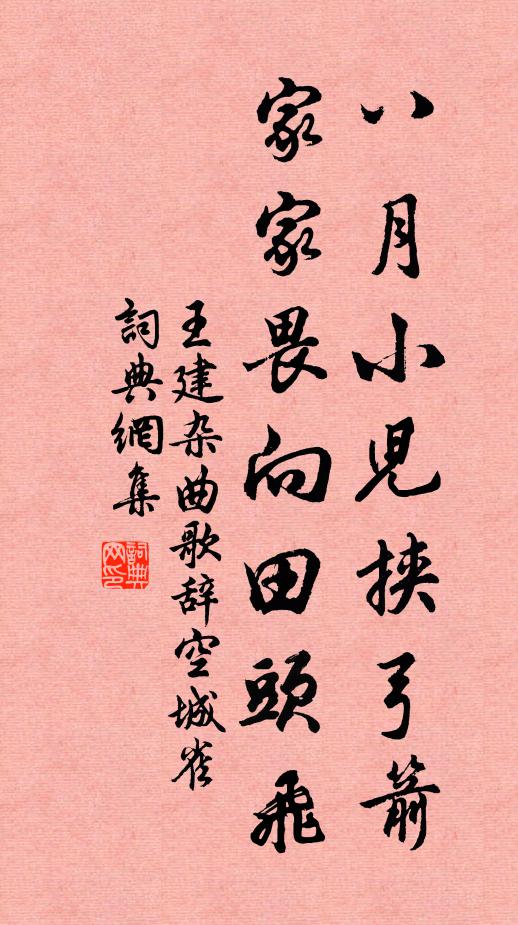 八月小兒挾弓箭
家家畏向田頭飛
王建杂曲歌辞空城雀
詞典網集
詞典网印